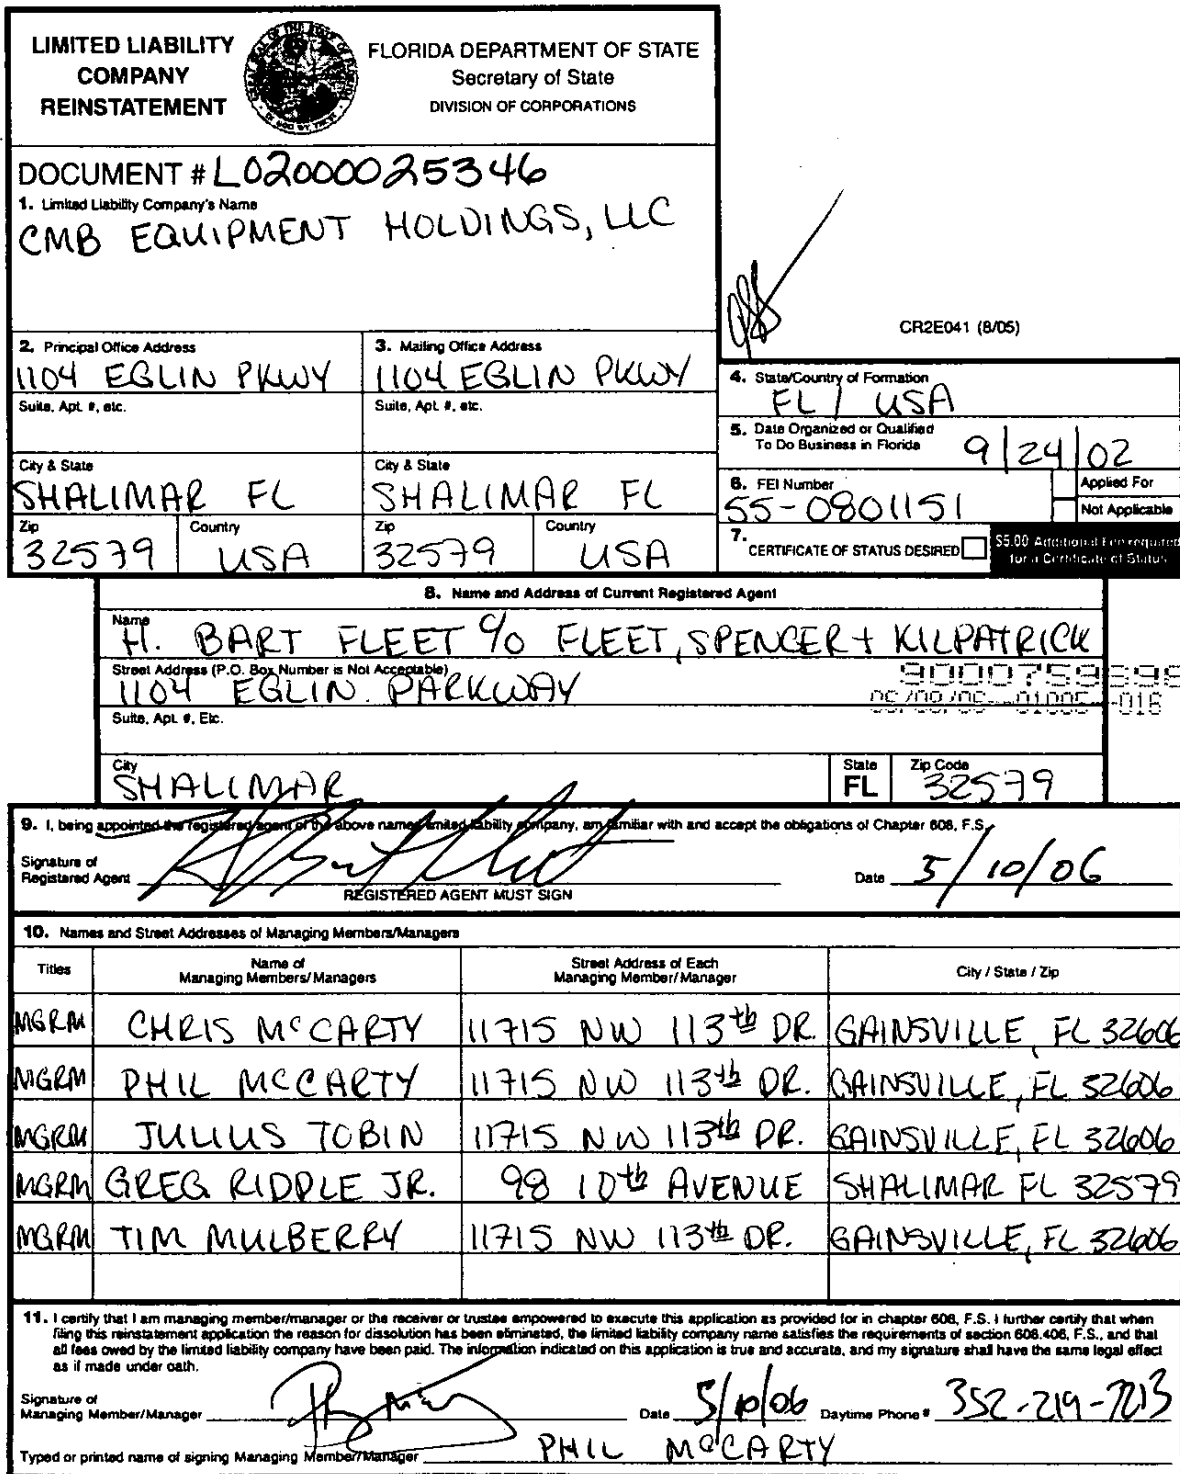 LIMITED LIABILITY
COMPANY
REINSTATEMENT
FLORIDA DEPARTMENT OF STATE
Secretary of State
DIVISION OF CORPORATIONS
DOCUMENT # L02000025346
1. Limited Liability Company's Name
CMB EQUIPMENT HOLDINGS, LLC
CR2E041 (8/05)
2. Principal Office Address
1104 EGLIN PKWY
Suite, Apt. #, etc.
City & State
SHALIMAR FL
Zip
32579
Country
USA
3. Mailing Office Address
1104 EGLIN PKWY
Suite, Apt. #, etc.
City & State
SHALIMAR FL
Zip
32579
Country
USA
4. State/Country of Formation
FL / USA
5. Date Organized or Qualified
To Do Business in Florida
9/24/02
6. FEI Number
55-0801151
Applied For
Not Applicable
7.
CERTIFICATE OF STATUS DESIRED
$5.00 Additional Fee required
for a Certificate of Status
8. Name and Address of Current Registered Agent
Name
H. BART FLEET % FLEET, SPENCER + KILPATRICK
Street Address (P.O. Box Number is Not Acceptable)
1104 EGLIN PARKWAY
Suite, Apt. #, Etc.
City
SHALIMAR
State
FL
Zip Code
32579
9. I, being appointed the registered agent of the above named limited liability company, am familiar with and accept the obligations of Chapter 608, F.S.
Signature of
Registered Agent
REGISTERED AGENT MUST SIGN
Date 5/10/06
10. Names and Street Addresses of Managing Members/Managers
Titles
Name of
Managing Members/Managers
Street Address of Each
Managing Member/Manager
City / State / Zip
MGRM CHRIS McCARTY 11715 NW 113th DR. GAINSVILLE, FL 32606
MGRM PHIL McCARTY 11715 NW 113th DR. GAINSVILLE, FL 32606
MGRM JULIUS TOBIN 11715 NW 113th DR. GAINSVILLE, FL 32606
MGRM GREG RIDDLE JR. 98 10th AVENUE SHALIMAR FL 32579
MGRM TIM MULBERRY 11715 NW 113th DR. GAINSVILLE, FL 32606
11. I certify that I am managing member/manager or the receiver or trustee empowered to execute this application as provided for in chapter 608, F.S. I further certify that when
filing this reinstatement application the reason for dissolution has been eliminated, the limited liability company name satisfies the requirements of section 608.406, F.S., and that
all fees owed by the limited liability company have been paid. The information indicated on this application is true and accurate, and my signature shall have the same legal effect
as if made under oath.
Signature of
Managing Member/Manager
Date 5/10/06 Daytime Phone # 352-219-7213
Typed or printed name of signing Managing Member/Manager PHIL McCARTY